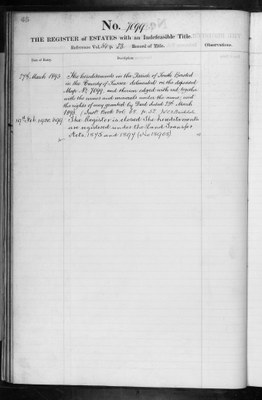 46
No. 7099
THE REGISTER of ESTATES with an Indefeasible Title.
Reference Vol. p. 23. Record of Title.
Observations.
Date of Entry.
Description
27th March 1893
The hereditaments in the Parish of South Bersted
in the County of Sussex delineated on the deposited
Map No. 7099 and thereon edged with red together
with the mines and minerals under the same and
the rights of way granted by Deed dated March
1899
The Register is closed. The hereditaments
are registered under the Land Transfer
Acts 1875 and 1897